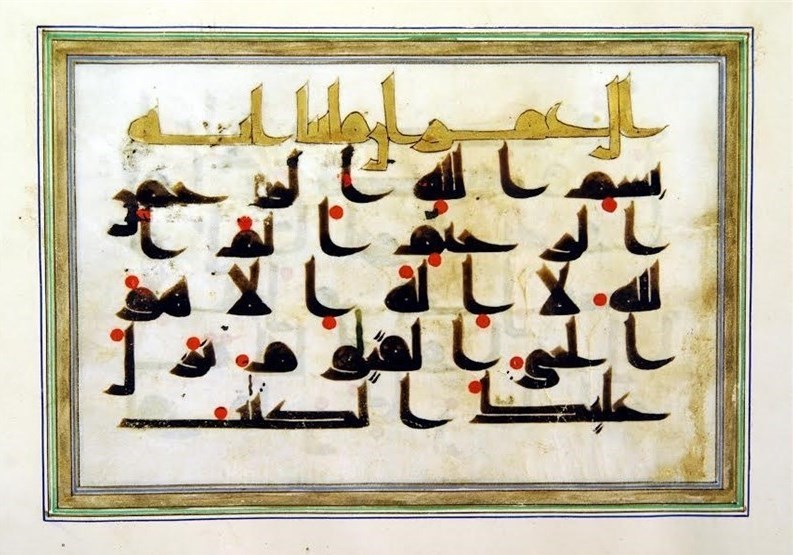 ال عمران ماىتا ايه
بسم الله الرحمن
الرحيم الم ا
لله لا اله الا هو
الحي القيوم نزل
عليك الكتب